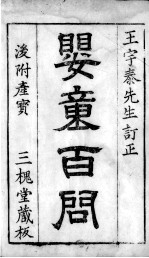 王宇泰先生訂正
嬰童百問
後附產寶
三槐堂藏板